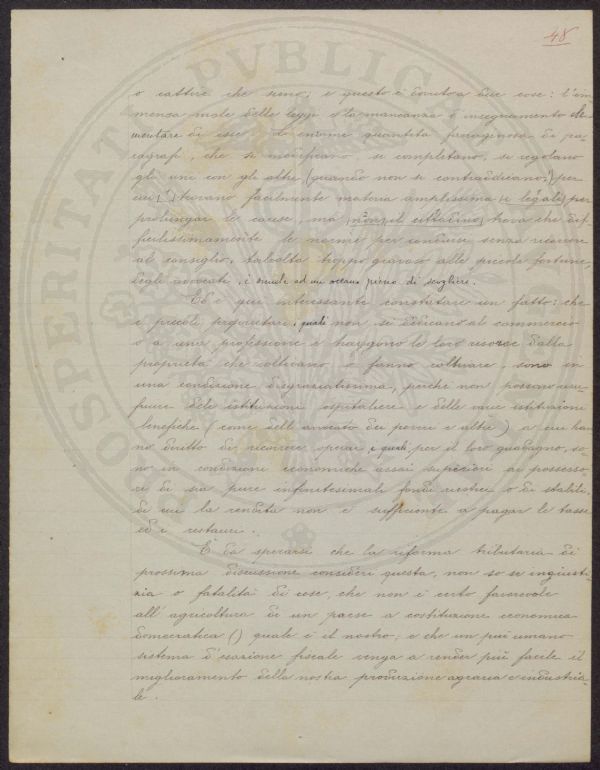 48
o cattive che sieno; e questo è dovuto a due cose: l'im-
mensa mole delle leggi e la mancanza d'insegnamento ele-
mentare di esse. La enorme quantità farraginosa di pa-
ragrafi, che si modificano, si completano, si regolano
gli uni con gli altri (quando non si contraddicono,) per
cui (") trovano facilmente materia amplissima (e legale) per
prolungar le cause, ma trova che dif-
ficilissimamente le norme per condursi senza ricorrere
al consiglio, talvolta troppo gravoso alle piccole fortune,
degli avvocati, è simile ad un oceano pieno di scogliere.
Ed è qui interessante constatare un fatto: che
i piccoli proprietari, i quali non si dedicano al commercio
o a una professione e traggono le loro risorse dalla
proprietà che coltivano o fanno coltivare, sono in
una condizione disgraziatissima, perché non possono usu-
fruire delle istituzioni ospitaliere e delle varie istituzioni
benefiche (come dell'avvocato dei poveri e altre) a cui han-
no diritto di ricorrere operai, i quali, per il loro guadagno, so-
no in condizioni economiche assai superiori ai possesso-
ri di sia pure infinitesimali fondi rustici o di stabili,
di cui la rendita non è sufficiente a pagar le tasse
ed i restauri.
È da sperarsi che la riforma tributaria di
prossima discussione consideri questa, non so se ingiusti-
zia o fatalità di cose, che non è certo favorevole
all'agricoltura di un paese a costituzione economica
democratica () quale è il nostro; e che un più umano
sistema d'esazione fiscale venga a render più facile il
miglioramento della nostra produzione agraria e industria-
le.
PROSPERITATI PUBLICAE